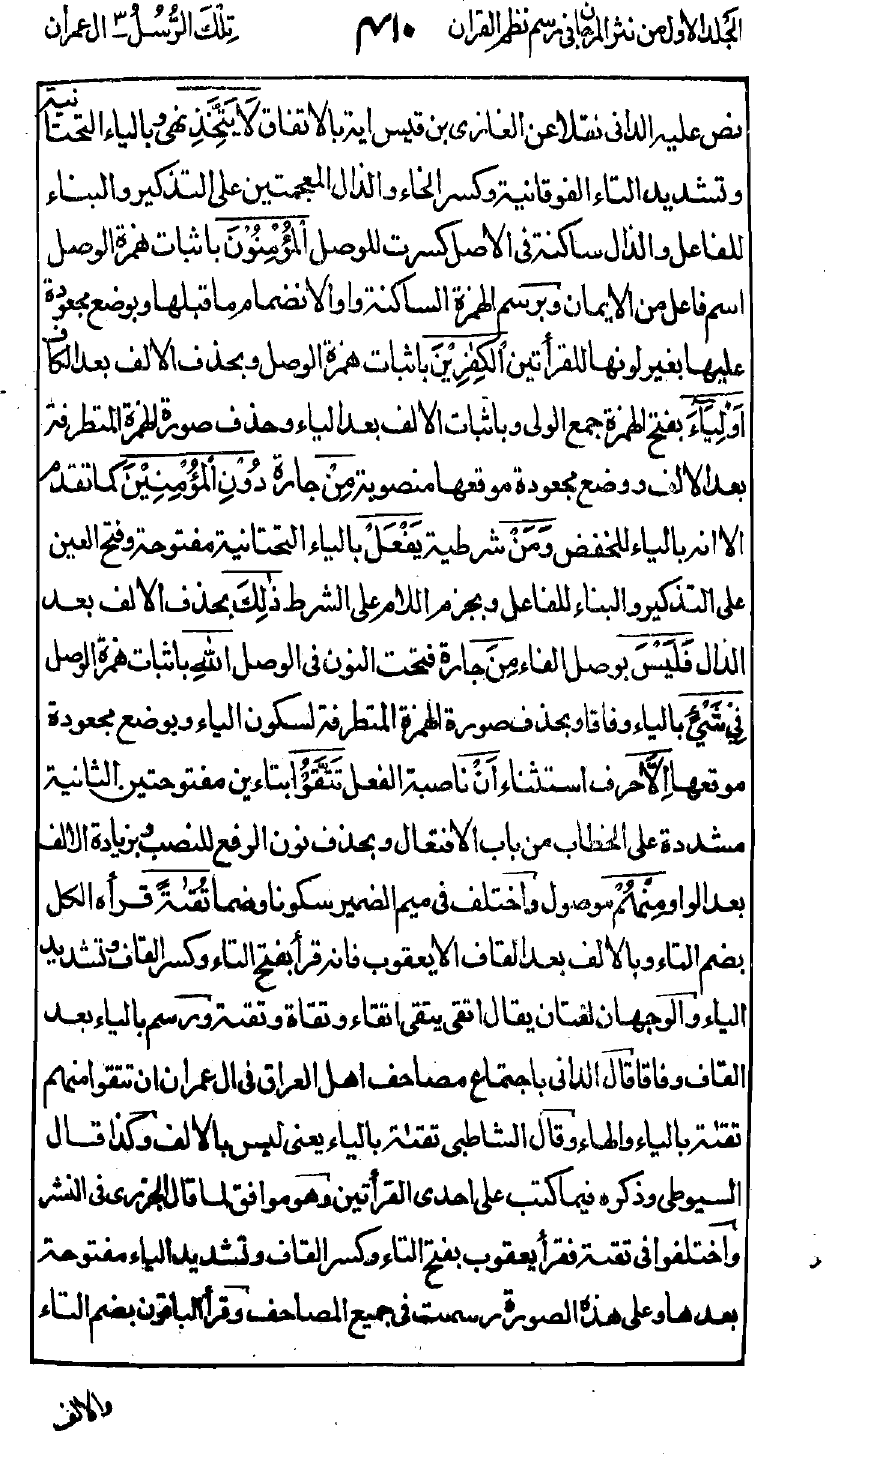 المجلد الاول من نثر المرجان فى رسم نظم القران ٤١٠ تِلْكَ الرُّسُلُ ٣ ال عمران
نص عليه الدانى نقلا عن الغازى بن قيس اية بالاتفاق لَا يَتَّخِذِ نهى وبالياء التحتانية
وتشديد التاء الفوقانية وكسر الخاء والذال المعجمتين على التذكير والبناء
للفاعل والذال ساكنة فى الاصل كسرت للوصل الْمُؤْمِنُوْنَ باثبات همزة الوصل
اسم فاعل من الايمان وبرسم الهمزة الساكنة واوا لانضمام ما قبلها وبوضع مجعودة
عليها بغير لونها للقرأتين الْكٰفِرِيْنَ باثبات همزة الوصل وبحذف الالف بعد الكاف
اَوْلِيَآءَ بفتح الهمزة جمع الولى وباثبات الالف بعد الياء وحذف صورة الهمزة المتطرفة
بعد الالف ووضع مجعودة موقعها منصوبة مِنْ جارة دُوْنِ الْمُؤْمِنِيْنَ كما تقدم
الا انه بالياء للخفض وَمَنْ شرطية يَفْعَلْ بالياء التحتانية مفتوحة وفتح العين
على التذكير والبناء للفاعل وبجزم اللام على الشرط ذٰلِكَ بحذف الالف بعد
الذال فَلَيْسَ بوصل الفاء مِنَ جارة فتحت النون فى الوصل اللّٰهِ باثبات همزة الوصل
فِيْ شَيْءٍ بالياء وفاقا وبحذف صورة الهمزة المتطرفة لسكون الياء وبوضع مجعودة
موقعها اِلَّا حرف استثناء اَنْ ناصبة الفعل تَتَّقُوْا بتاءين مفتوحتين الثانية
مشددة على الخطاب من باب الافتعال وبحذف نون الرفع للنصب وبزيادة الالف
بعد الواو مِنْهُمْ موصول واختلف فى ميم الضمير سكونا وضما تُقٰىةً قرأه الكل
بضم التاء وبالالف بعد القاف الا يعقوب فانه قرأ بفتح التاء وكسر القاف وتشديد
الياء والوجهان لغتان يقال اتقى يتقى اتقاء وتقاة وتقية ورسم بالياء بعد
القاف وفاقا قال الدانى باجتماع مصاحف اهل العراق فى ال عمران ان تتقوا منهم
تقىٰة بالياء والهاء وقال الشاطبى تقىٰة بالياء يعنى ليس بالالف وكذا قال
السيوطى وذكره فيما كتب على احدى القرأتين وهو موافق لما قال الجزرى فى النشر
واختلفوا فى تقية فقرأ يعقوب بفتح التاء وكسر القاف وتشديد الياء مفتوحة
بعدها وعلى هذه الصورة رسمت فى جميع المصاحف وقرأ الباقون بضم التاء
والالف